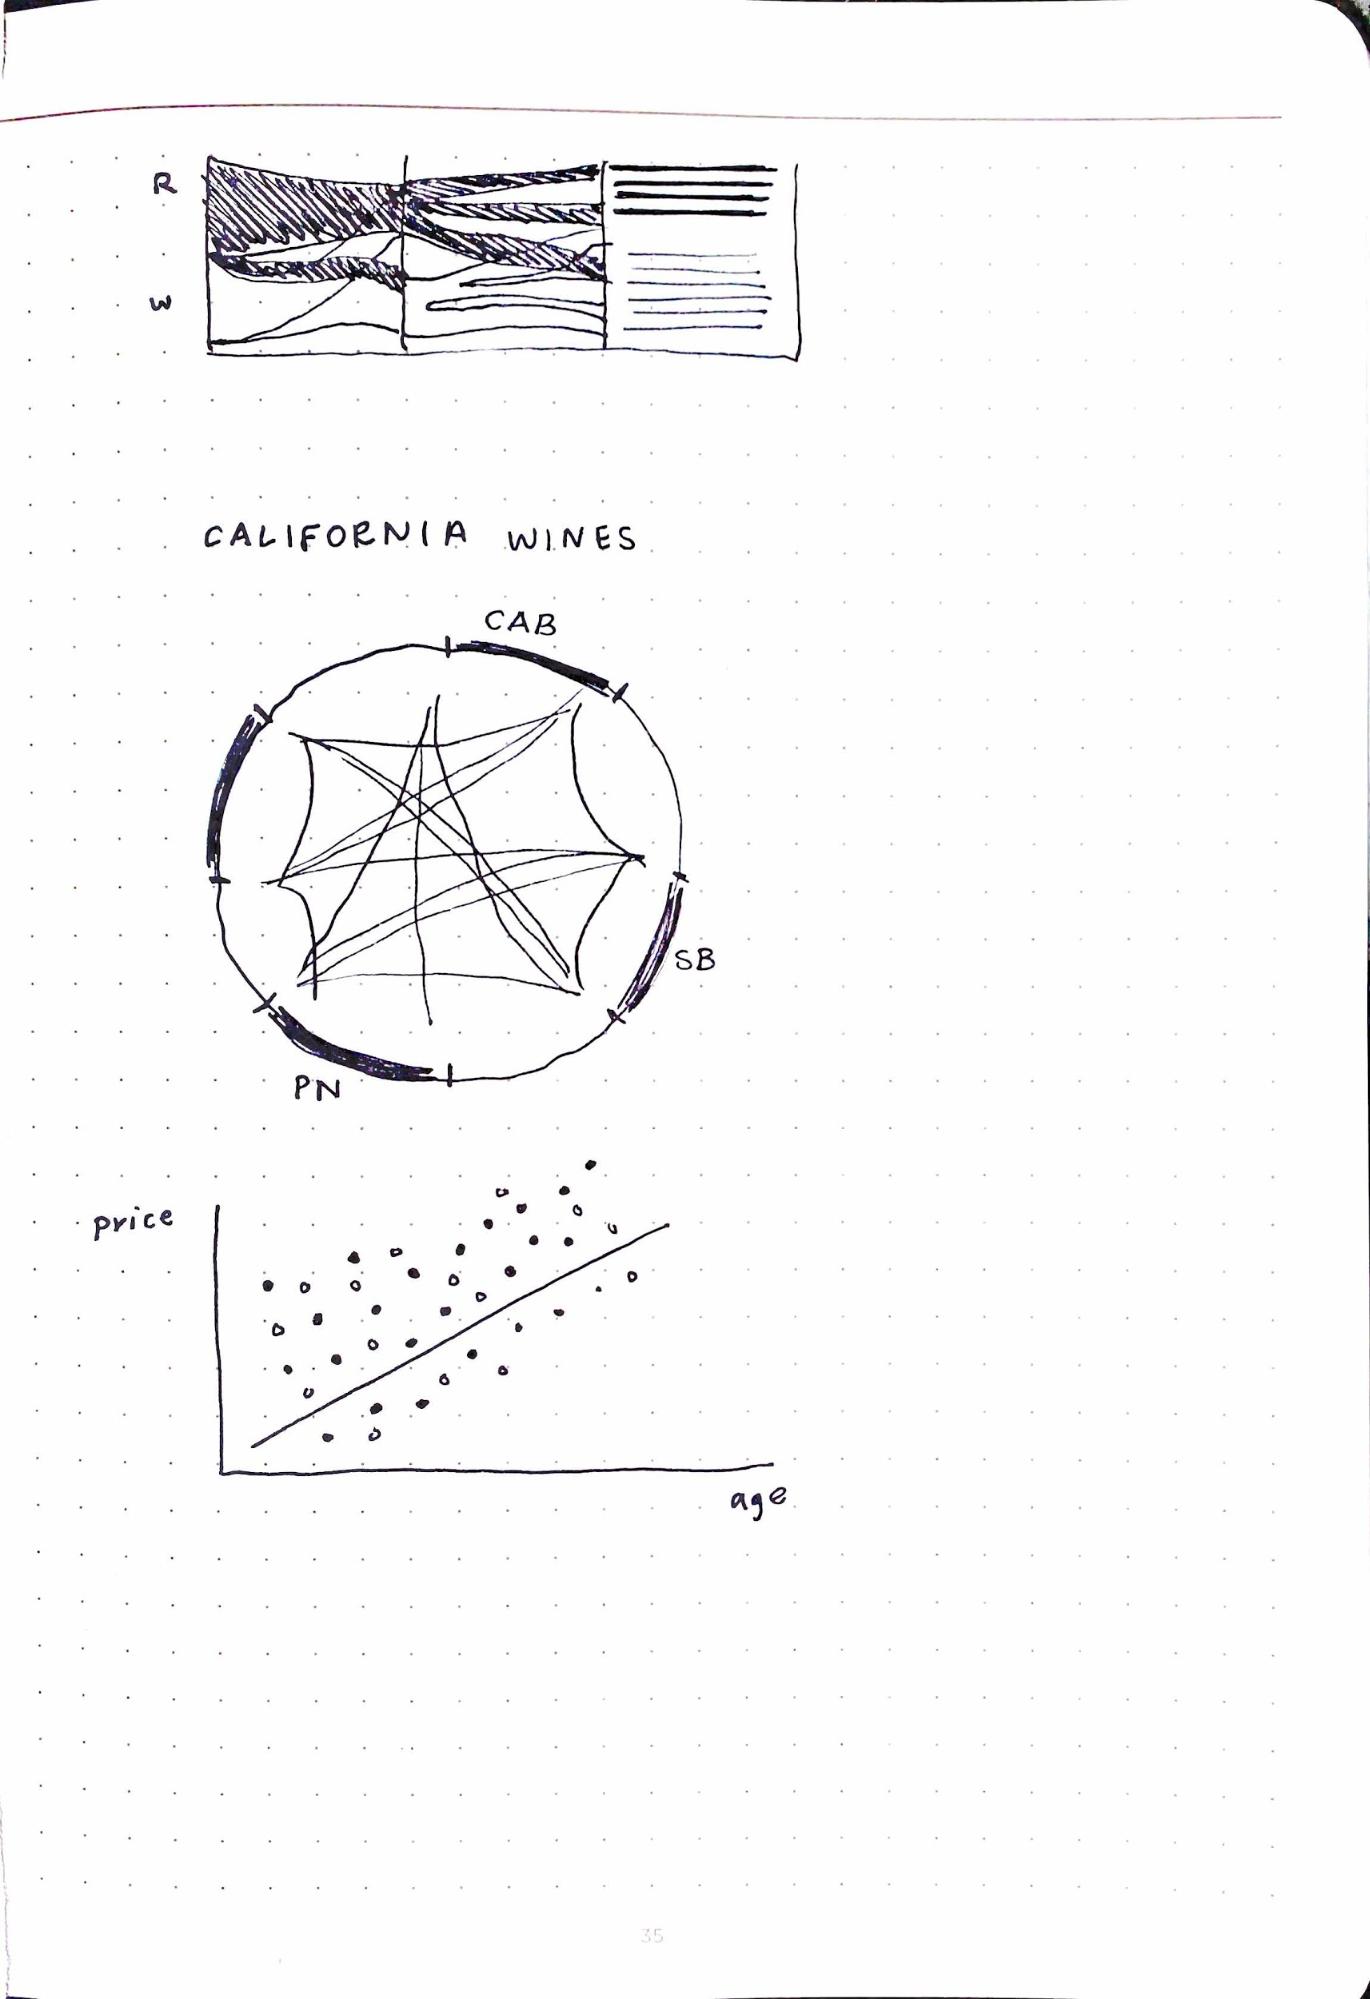 R
W
CALIFORNIA WINES
CAB
SB
PN
price
age
35